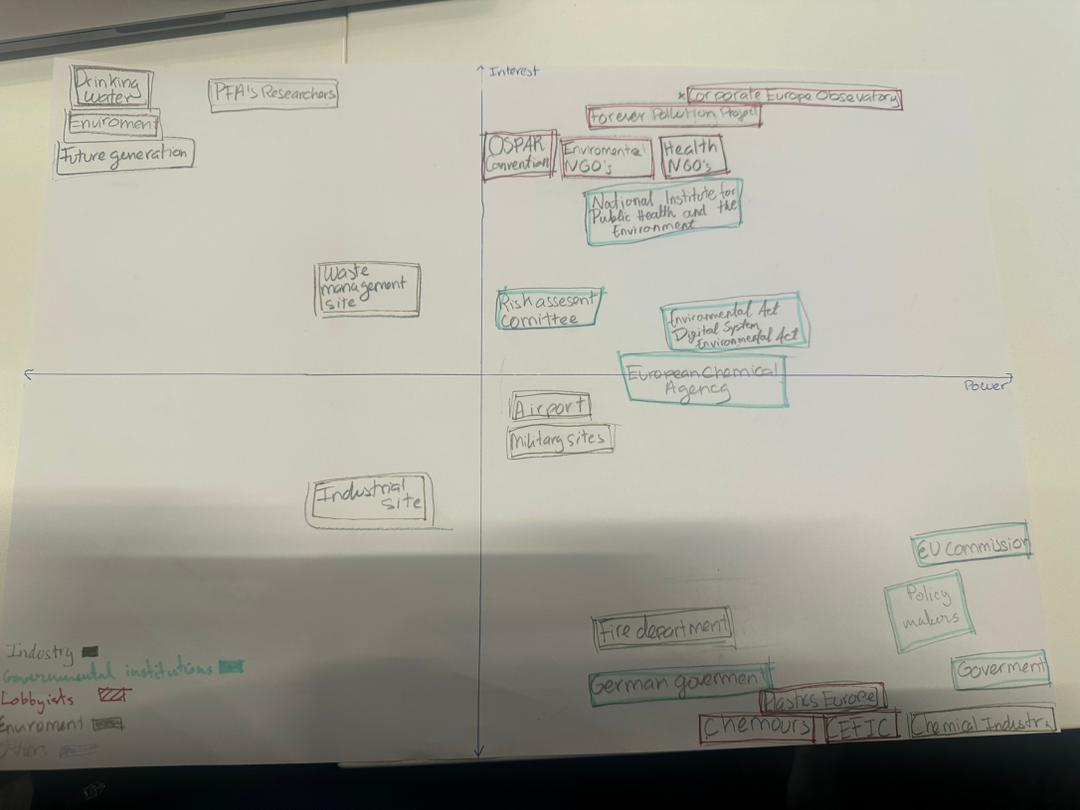 Interest
Drinking
water
Enviroment
Future generation
PFA's Researchers
*Corporate Europe Observatory
Forever Pollution Project
OSPAR
Convention
Enviromental
NGO's
Health
NGO's
National Institute for
Public Health and the
Environment
Waste
management
site
Risk assesent
Comittee
Environmental Act
Digital System
Environmental Act
European Chemical
Agency
Power
Airport
Military sites
Industrial
site
EU Commission
Policy
makers
Fire department
German goverment
Goverment
Plastics Europe
Chemours
CEFIC
Chemical Industry
Industry
Governmental institutions
Lobbyists
Enviroment
Others